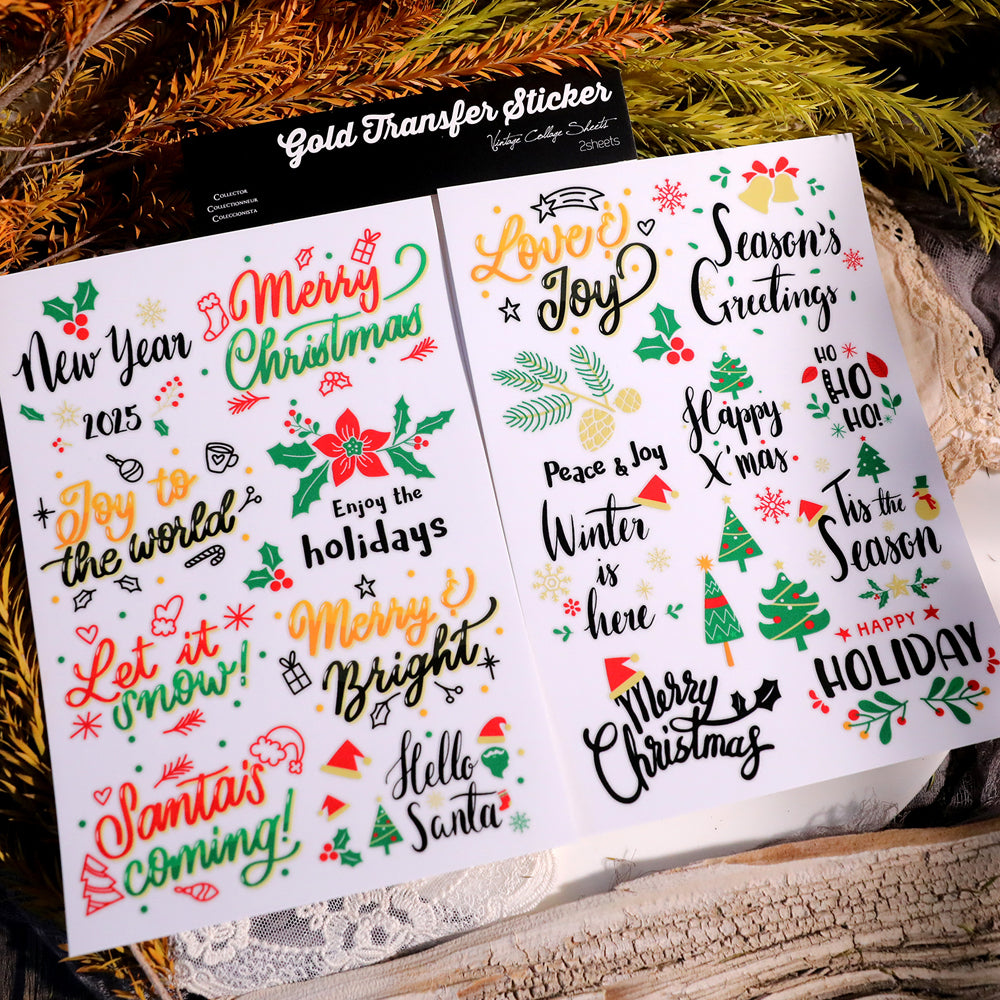 Gold Transfer Sticker
Vintage Collage Sheets
2sheets
COLLECTOR
COLLECTIONNEUR
COLECCIONISTA
New Year
2025
Merry
Christmas
Joy to
the world
Enjoy the
holidays
Let it
snow!
Merry &
Bright
Santa's
coming!
Hello
Santa
Love &
Joy
Season's
Greetings
Peace & Joy
Happy
X'mas
HO
HO
HO!
Winter
is
here
Tis the
Season
Merry
Christmas
HAPPY
HOLIDAY